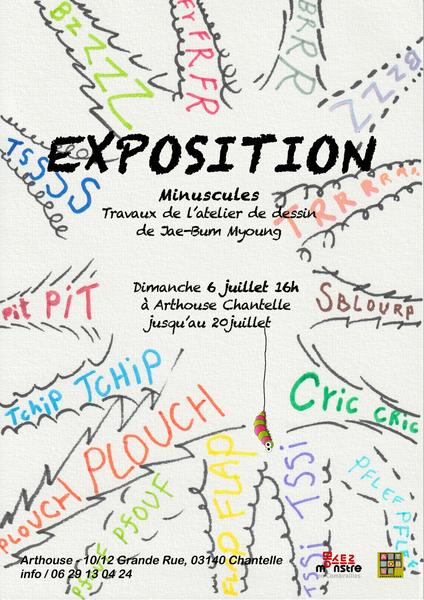 BZ ZZZZ
FY FRFR
BRRR
BZZZZ
TSSSSS
EXPOSITION
Minuscules
Travaux de l'atelier de dessin
de Jae-Bum Myoung
TRRRRR
Dimanche 6 juillet 16h
à Arthouse Chantelle
jusqu'au 20 juillet
Pit PiT
SBLOURP
Tchip TCHiP
PLOUCH PLOUCH
Cric cric
PJOUF PJOUF
FLAP FLAP
TSSi TSSi
PFLEF PFLEF
Arthouse - 10/12 Grande Rue, 03140 Chantelle
info / 06 29 13 04 24